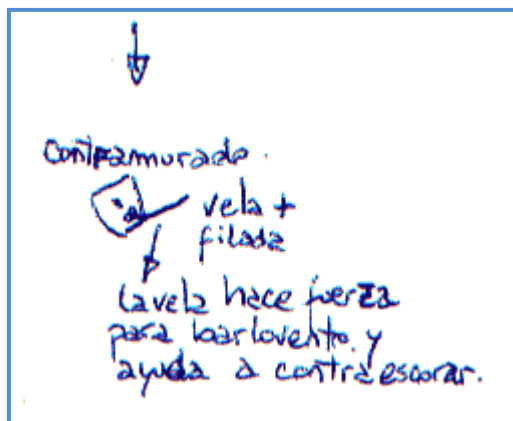 contramurado.
vela +
filada
la vela hace fuerza
para barlovento y
ayuda a contraescorar.